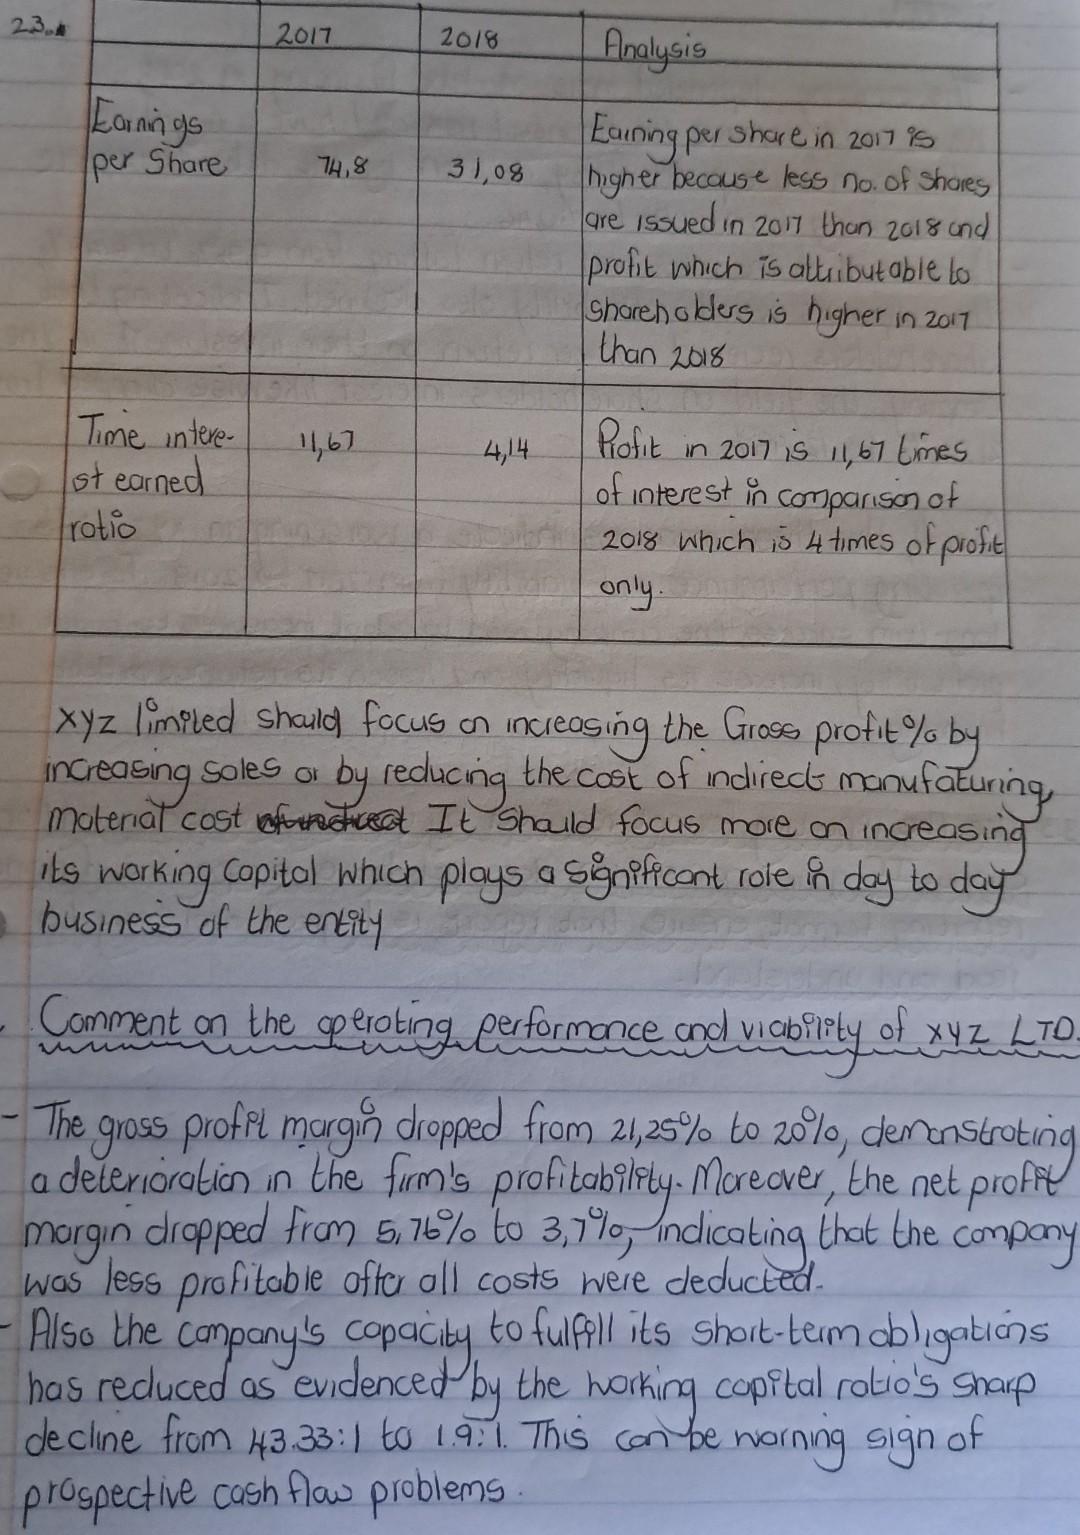 23.
2017 2018 Analysis
Earnings
per Share 74,8 31,08
Earning per share in 2017 is
higher because less no. of shares
are issued in 2017 than 2018 and
profit which is attributable to
shareholders is higher in 2017
than 2018
Time intere-
st earned
ratio
11,67 4,14
Profit in 2017 is 11,67 times
of interest in comparison of
2018 which is 4 times of profit
only.
xyz limited should focus on increasing the Gross profit% by
increasing sales or by reducing the cost of indirect manufaturing,
material cost It should focus more on increasing
its working capital which plays a significant role in day to day
business of the entity
Comment on the operating performance and viability of xyz LTD.
- The gross profit margin dropped from 21,25% to 20%, demonstrating
a deterioration in the firm's profitability. Moreover, the net profit
margin dropped from 5,76% to 3,7%, indicating that the company
was less profitable after all costs were deducted.
- Also the company's capacity to fulfill its short-term obligations
has reduced as evidenced by the working capital ratio's sharp
decline from 43.33:1 to 1.9:1. This can be warning sign of
prospective cash flow problems.